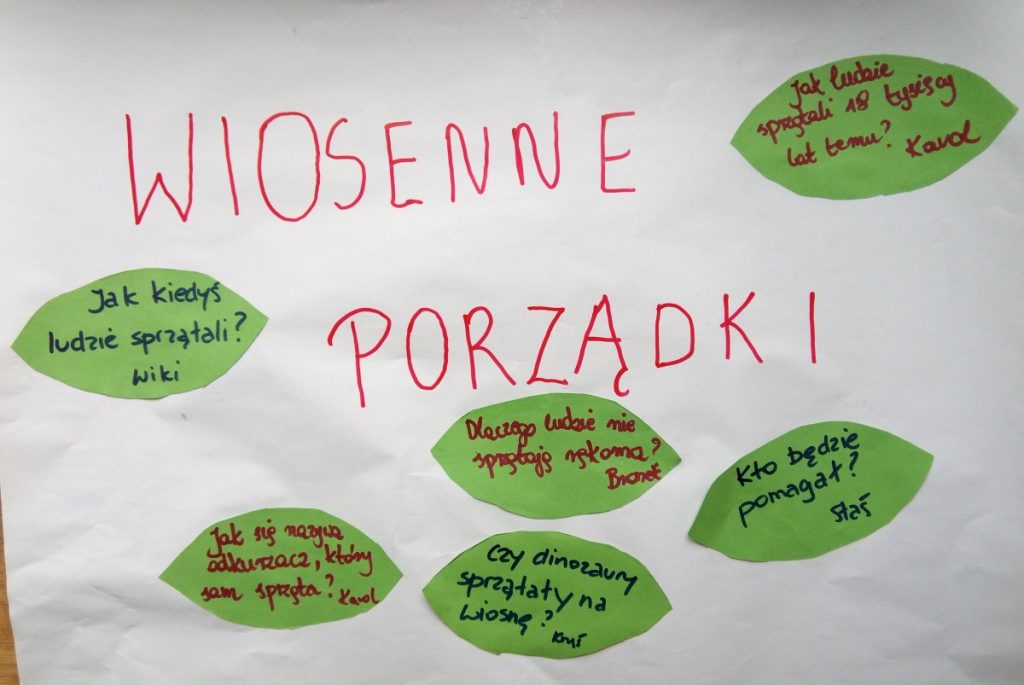 WIOSENNE
PORZĄDKI
Jak ludzie
sprzątali 18 tysięcy
lat temu?
Karol
Jak kiedyś
ludzie sprzątali?
Wiki
Dlaczego ludzie nie
sprzątają rękoma?
Bronek
Kto będzie
pomagał?
Staś
Jak się nazywa
odkurzacz, który
sam sprząta?
Karol
Czy dinozaury
sprzątały na
wiosnę?
Kryś